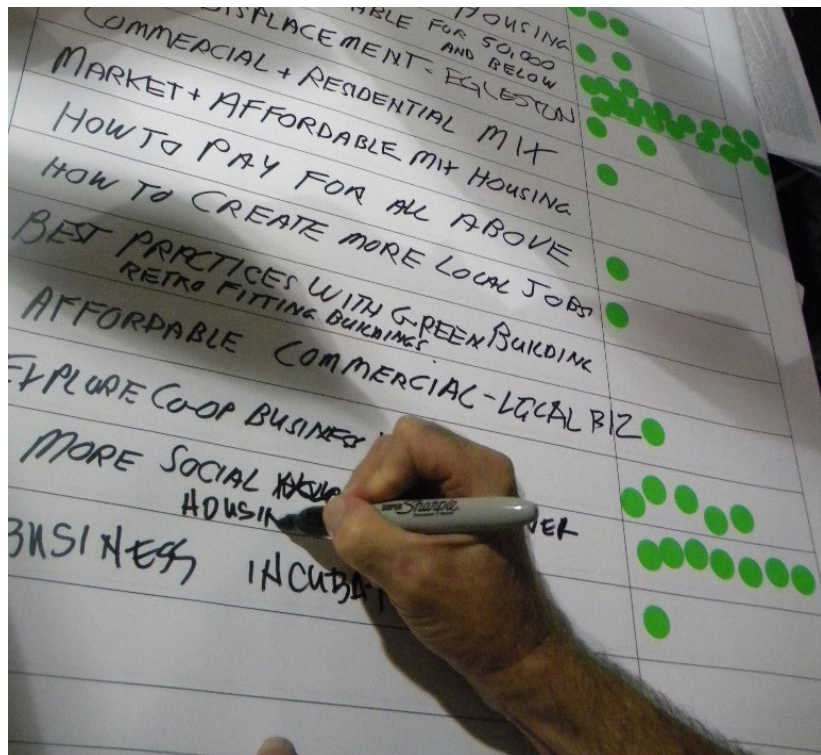 HOUSING
ABLE FOR 50,000
AND BELOW
DISPLACEMENT - EGLESTON
COMMERCIAL + RESIDENTIAL MIX
MARKET + AFFORDABLE MIX HOUSING
HOW TO PAY FOR ALL ABOVE
HOW TO CREATE MORE LOCAL JOBS
BEST PRACTICES WITH GREEN BUILDING
RETRO FITTING BUILDINGS
AFFORDABLE COMMERCIAL - LOCAL BIZ
EXPLORE CO-OP BUSINESS
MORE SOCIAL
HOUSIN
BUSINESS INCUBAT
SUPER Sharpie